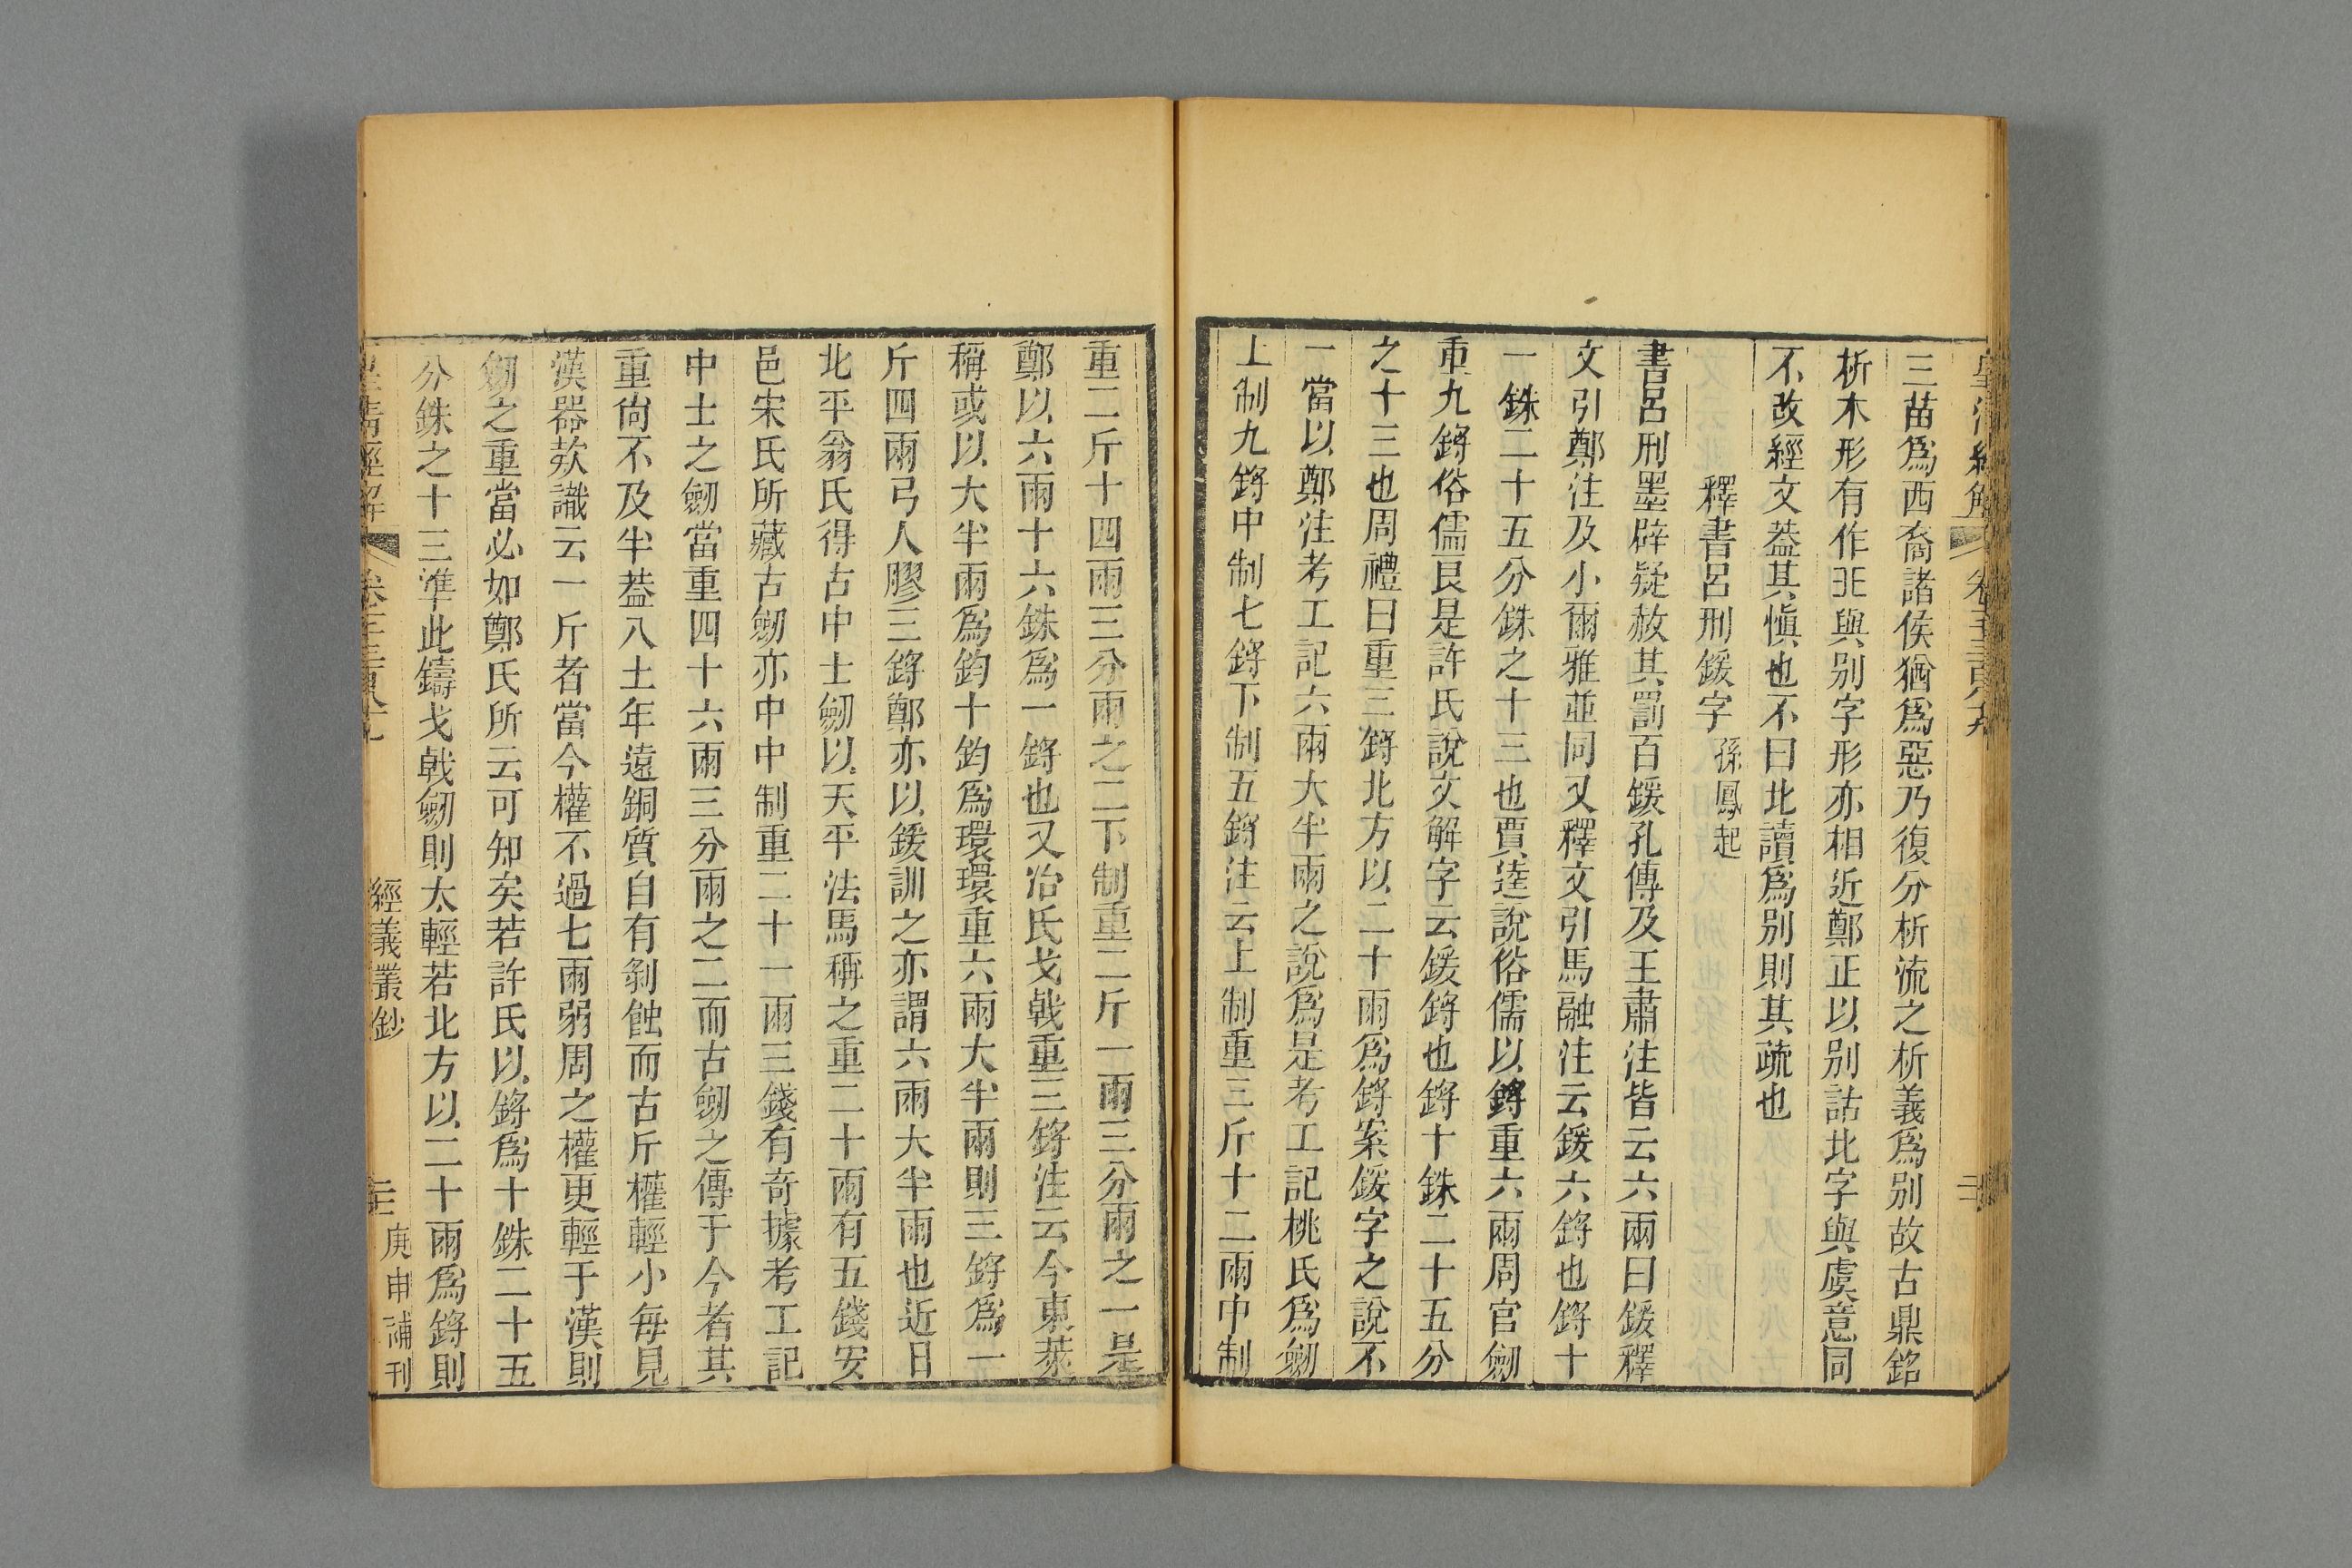 三苗爲西裔諸侯猶爲惡乃復分析流之析義爲别故古鼎銘
析木形有作𠨍與别字形亦相近鄭正以别詁北字與虞意同
不改經文葢其愼也不曰北讀爲别則其疏也
釋書呂刑鍰字 孫鳳起
書呂刑墨辟疑赦其罰百鍰孔傳及王肅注皆云六兩曰鍰釋
文引鄭注及小爾雅並同又釋文引馬融注云鍰六鋝也鋝十
一銖二十五分銖之十三也賈逵說俗儒以鋝重六兩周官劒
重九鋝俗儒艮是許氏說文解字云鍰鋝也鋝十銖二十五分
之十三也周禮曰重三鋝北方以二十兩爲鋝案鍰字之說不
一當以鄭注考工記六兩大半兩之說爲是考工記桃氏爲劒
上制九鋝中制七鋝下制五鋝注云上制重三斤十二兩中制
重二斤十四兩三分兩之二下制重二斤一兩三分兩之一是
鄭以六兩十六銖爲一鋝也又冶氏戈戟重三鋝注云今東萊
稱或以大半兩爲鈞十鈞爲環環重六兩大半兩則三鋝爲一
斤四兩弓人膠三鋝鄭亦以鍰訓之亦謂六兩大半兩也近日
北平翁氏得古中士劒以天平法馬稱之重二十兩有五錢安
邑宋氏所藏古劒亦中中制重二十一兩三錢有奇據考工記
中士之劒當重四十六兩三分兩之二而古劒之傳于今者其
重尙不及半葢入土年遠銅質自有剝蝕而古斤權輕小每見
漢器欵識云一斤者當今權不過七兩弱周之權更輕于漢則
劒之重當必如鄭氏所云可知矣若許氏以鋝爲十銖二十五
分銖之十三準此鑄戈戟劒則太輕若北方以二十兩爲鋝則
皇淸經解
經義叢鈔
庚申補刊